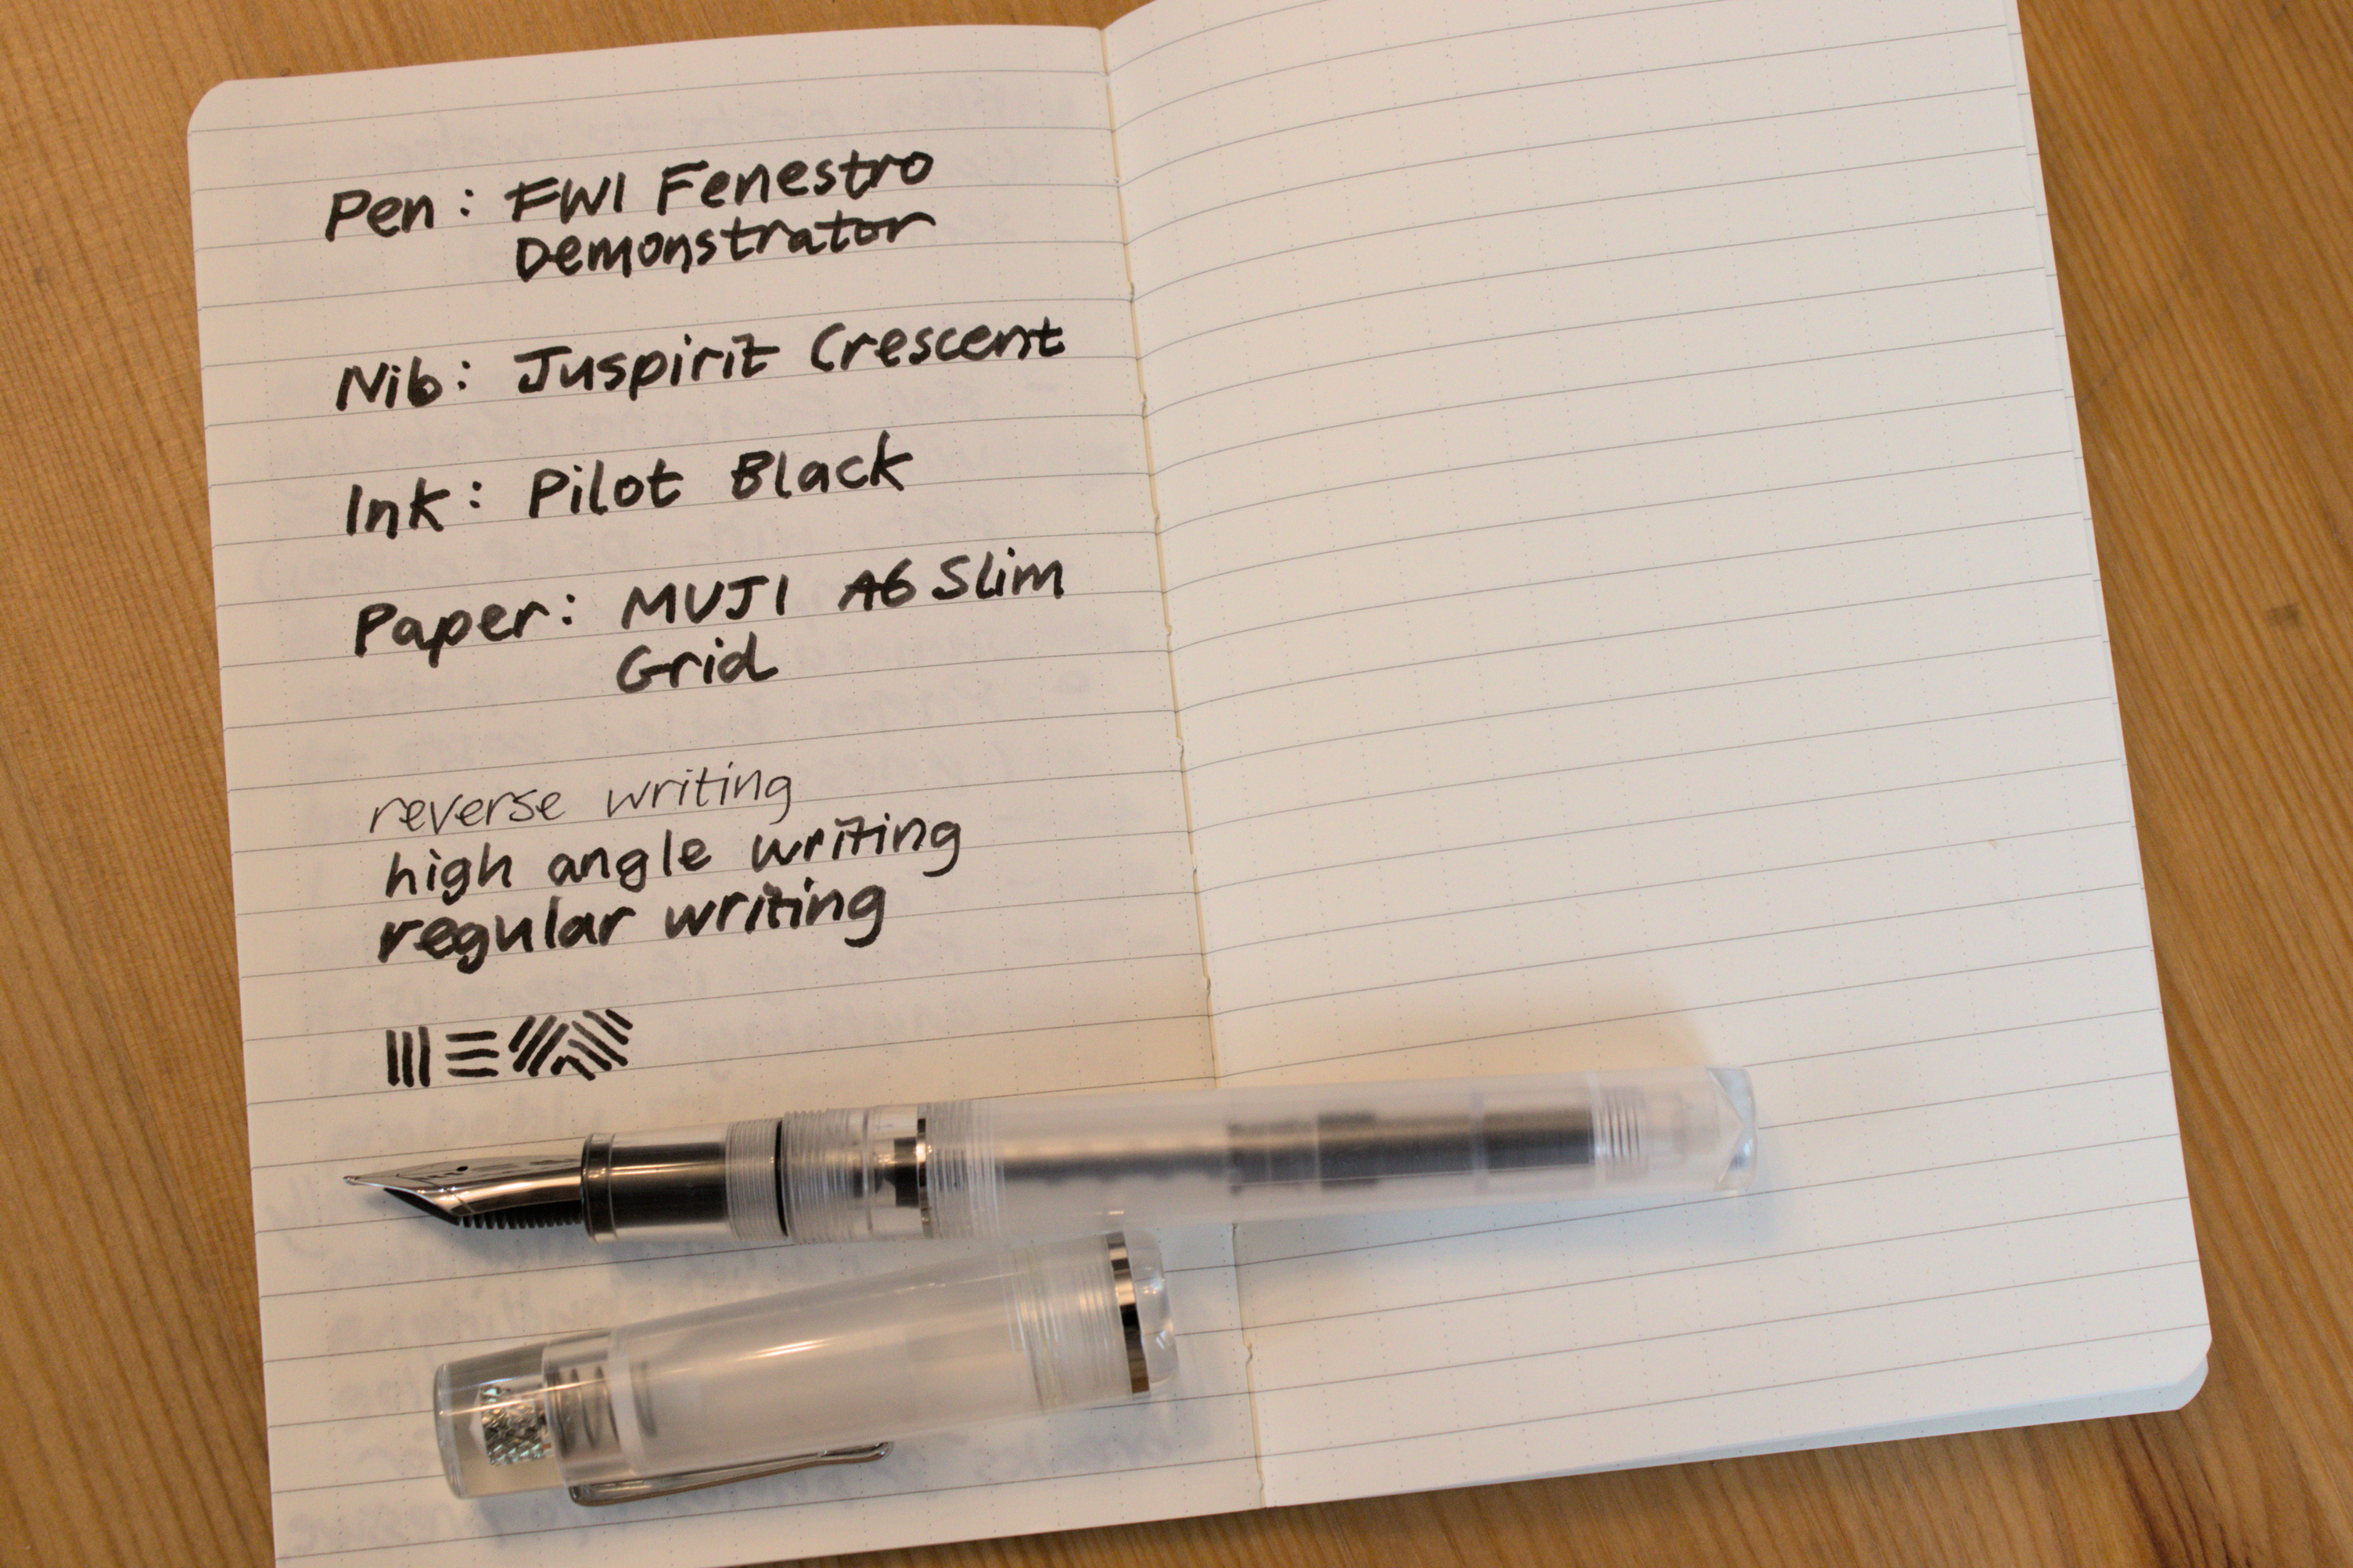 Pen: FWI Fenestro
Demonstrator
Nib: Juspirit Crescent
Ink: Pilot Black
Paper: MUJI A6 Slim
Grid
reverse writing
high angle writing
regular writing